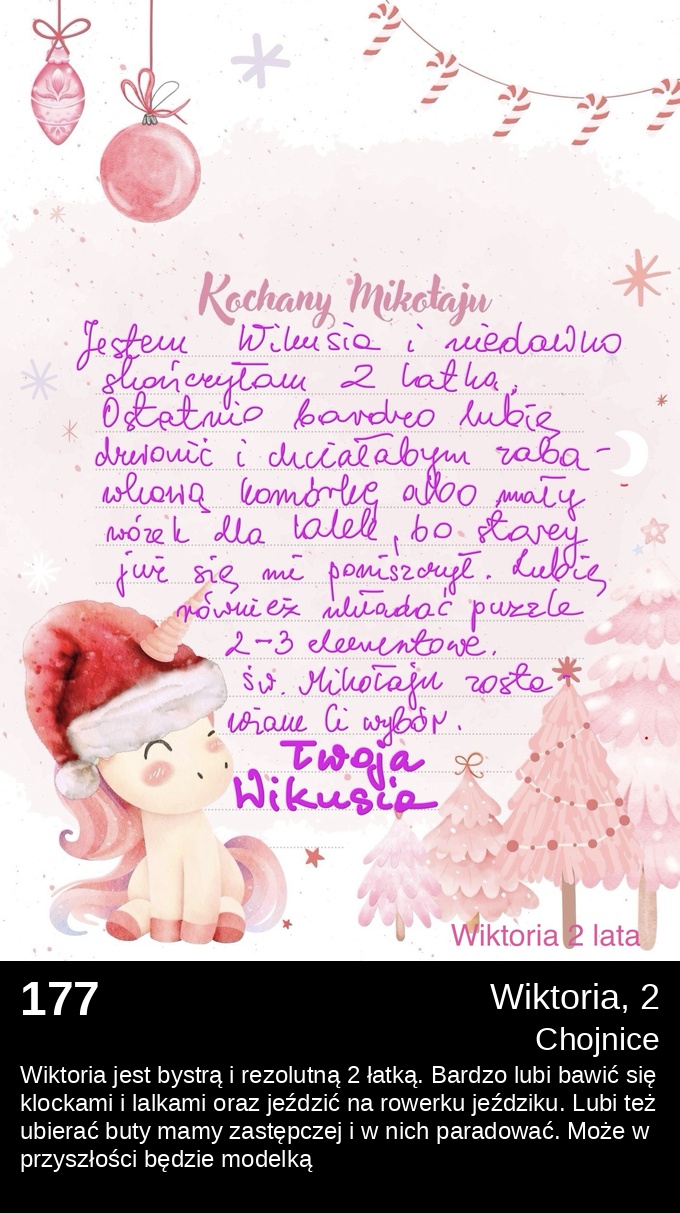 Kochany Mikołaju
Jestem Wikusia i niedawno
skończyłam 2 latka.
Ostatnio bardzo lubię
dzwonić i chciałabym zaba-
wkową komórkę albo mały
wózek dla lalek, bo starey
już się mi poniszczył. Lubię
również układać puzzle
2-3 elementowe.
św. Mikołaju zosta
wiam Ci wybór.
Twoja
Wikusia
Wiktoria 2 lata
177
Wiktoria, 2
Chojnice
Wiktoria jest bystrą i rezolutną 2 łatką. Bardzo lubi bawić się
klockami i lalkami oraz jeździć na rowerku jeździku. Lubi też
ubierać buty mamy zastępczej i w nich paradować. Może w
przyszłości będzie modelką